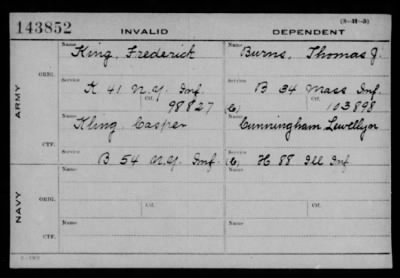 143852 INVALID DEPENDENT (3-H-3)
ARMY
ORIG.
Name King, Frederick
Name Burns, Thomas J.
Service K 41 N.Y. Inf.
Service B 34 Mass Inf.
Ctf. 98827
(C) Ctf. 103898
CTF.
Name Kling, Casper
Name Cunningham, Lewellyn
Service B 54 N.Y. Inf.
Service (C) H 88 Ill Inf
NAVY
ORIG.
Name
Ctf.
Name
Ctf.
CTF.
Name
Name